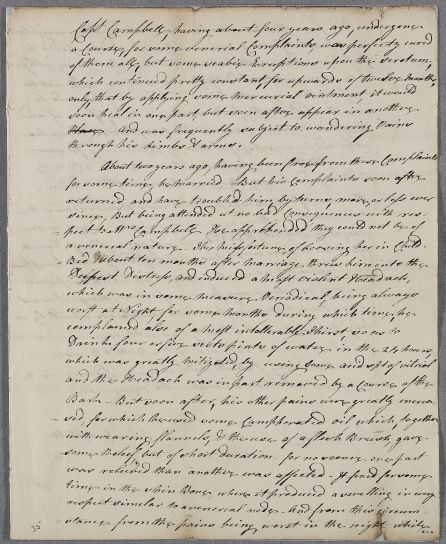 Capt. Campbell having about four years ago, undergone
a Course, for some venerial Complaints, was perfectly cured
of them all, but some scabie Eruptions upon the scrotum,
which continued pretty constant, for upwards of twelve months
only that by applying some mercurial ointment, it would
soon heal in one part, but soon after appear in another.
And was frequently subject to wandering Pains
through his Limbs & arms.
About two years ago, having been free from these Complaints
for some time, he married. But his complaints soon after
returned, and have troubled him by turns, more or less ever
since, But being attended wt no bad Consequences with res-
pect to Mrs Campbell. He apprehended they could not be of
a venereal nature. The misfortune of loosing her in Child
Bed about ten months after marriage threw him into the
Deepest Distress, and induced a most violent Headach,
which was in some measure Periodical being always
worst at Night for some months during which time, he
complained also of a most intollerable Thirst, so as to
Drink four or five pints of water in the 24 hours
which was greatly mitigated by using some acid spt of vitriol
and the Headach was in part removed by a Course of the
Bark – But soon after, his other pains were greatly increa
sed, for which he used some Camphorated oil which, together
with wearing flannels, & the use of a flesh Brush, gave
some Relief but of short duration. for no sooner one part
was relieved than another was affected. It fixed for some
time in the shin Bone, where it produced a swelling in every
respect similar to a venereal node. And from this circum
stance, from the pains being worst in the night while
35